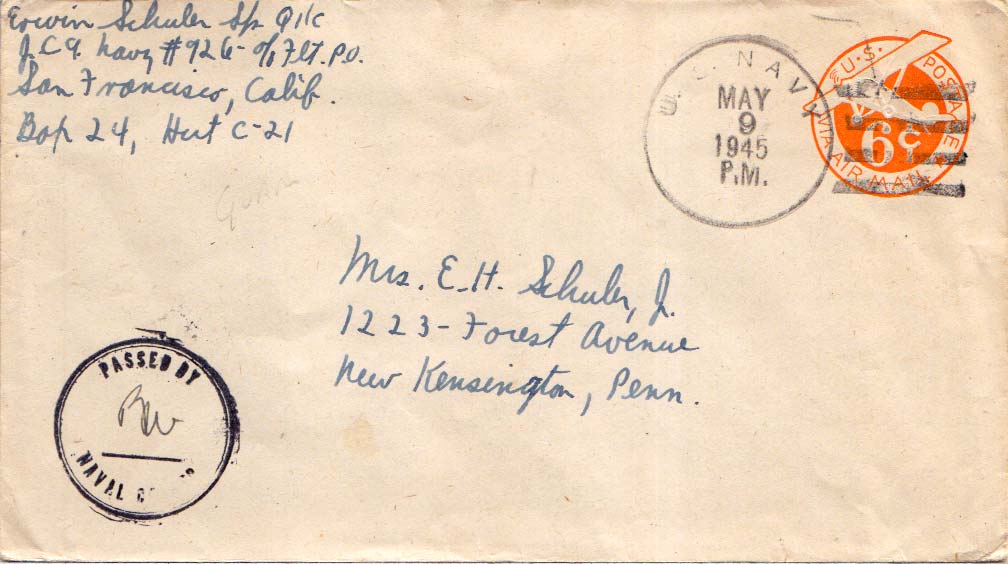 Erwin Schuler Sp. Q 1/c
Navy #926 - c/o Flt. P.O.
San Francisco, Calif.
Box 24, Hut C-21
U.S. NAVY
MAY
9
1945
P.M.
U.S. POSTAGE
6¢
VIA AIR MAIL
Guam
Mrs. E. H. Schuler, J.
1223 - Forest Avenue
New Kensington, Penn.
PASSED BY
NAVAL